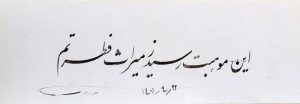 این موهبت رسید ز میراث فطرتم
۱۴۰۱/۴/۲۲